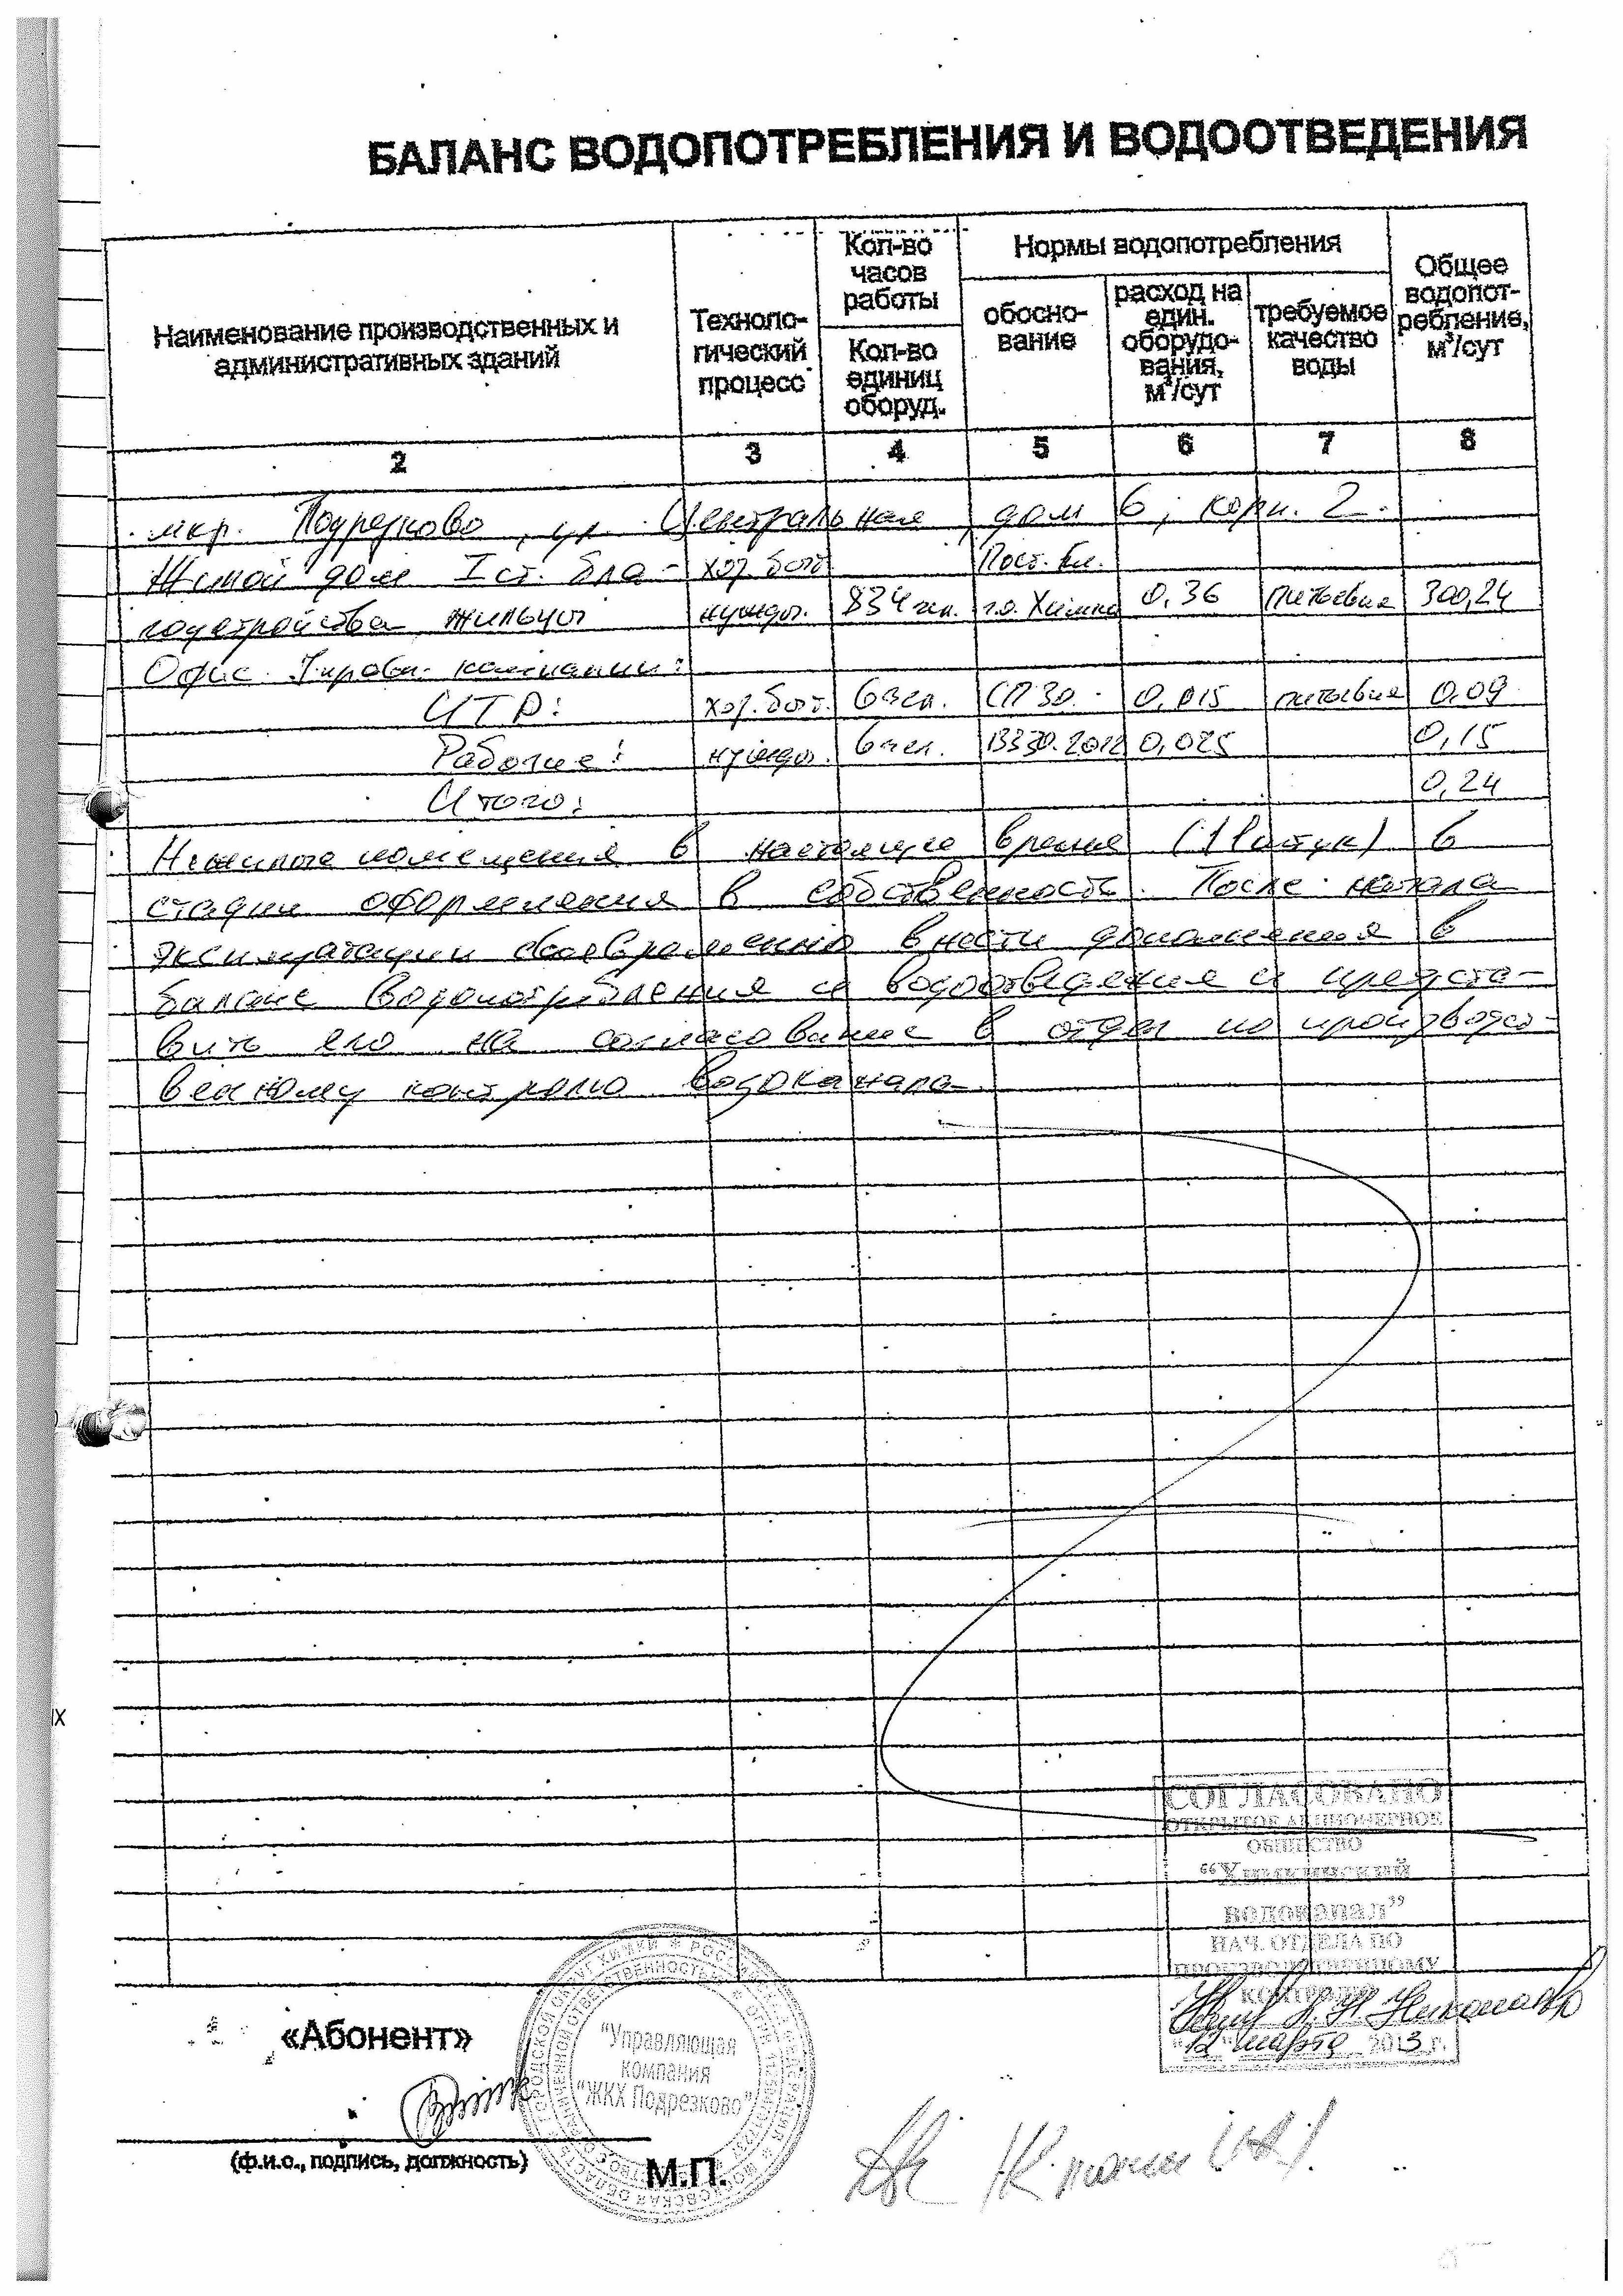 БАЛАНС ВОДОПОТРЕБЛЕНИЯ И ВОДООТВЕДЕНИЯ
Наименование производственных и административных зданий
Техноло-
гический
процесс
Кол-во
часов
работы
Кол-во
единиц
оборуд.
Нормы водопотребления
обосно-
вание
расход на
един.
оборудо-
вания,
м³/сут
требуемое
качество
воды
Общее
водопот-
ребление,
м³/сут
2 3 4 5 6 7 8
мкр. Подрезково, ул. Центральная, дом 6, корп. 2.
Жилой дом I ст. бла- хоз. быт Пост. Гл.
гоустройства жильцы нужды. 834 чел. г.о. Химки 0,36 питьевая 300,24
Офис Управл. компании:
ИТР: хоз. быт. 6 чел. СП 30. 0,015 питьевая 0,09
Рабочие: нужды. 6 чел. 13330.2012 0,025 0,15
Итого: 0,24
Нежилые помещения в настоящее время (11 штук) в
стадии оформления в собственность. После начала
эксплуатации своевременно внести дополнения в
баланс водопотребления и водоотведения и предста-
вить его на согласование в отдел по производст-
венному контролю водоканала.
СОГЛАСОВАНО
ОТКРЫТОЕ АКЦИОНЕРНОЕ
ОБЩЕСТВО
“Химкинский
водоканал”
НАЧ. ОТДЕЛА ПО
ПРОИЗВОДСТВЕННОМУ
КОНТРОЛЮ
"12" марта 2013 г.
«Абонент»
"Управляющая
компания
"ЖКХ Подрезково"
(ф.и.о., подпись, должность)
М.П.